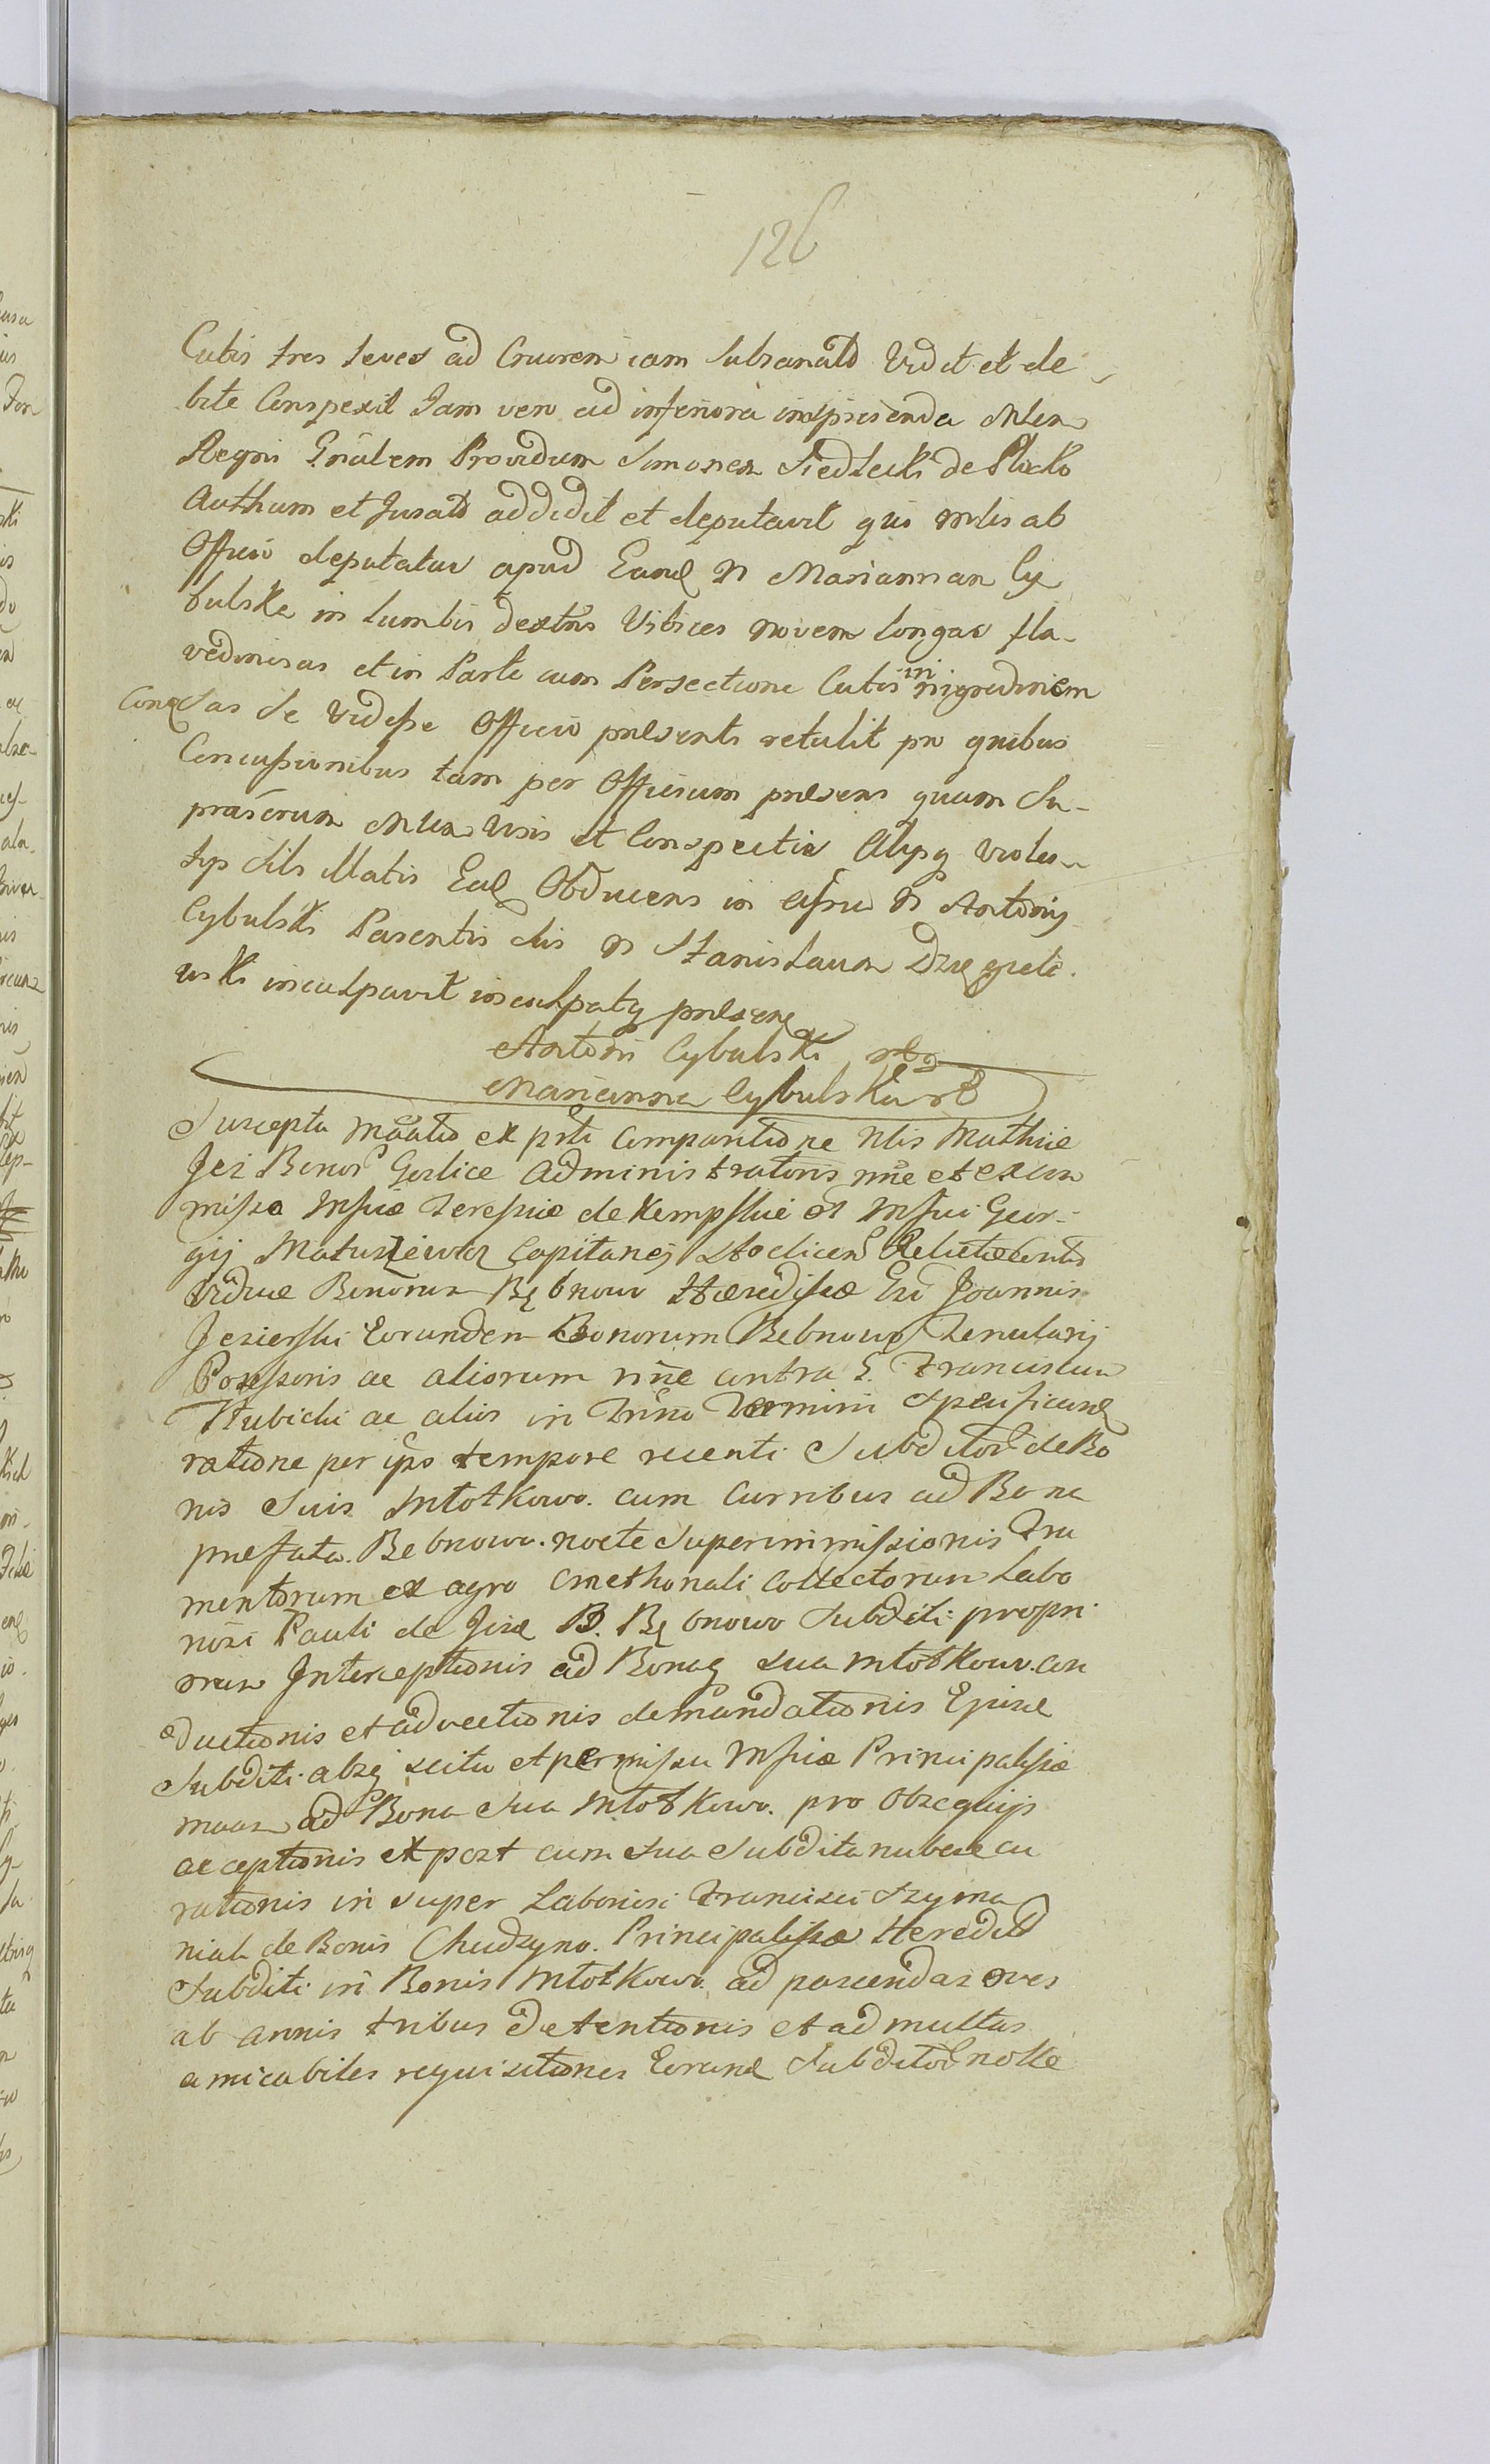 126
Cutis tres leves ad Cruorem iam Subsanato Vidit et de
bite Conspexit Jam vero ad inferiora inspicienda Mlen
Regni Gnalem Providum Simonem Siedlecki de Plocko
Authum et Jurato addidit et deputavit qui mlis ab
Officio deputatus apud Eand N Mariannan Cy
bulska in lumbis dextris Vibices novem longas fla-
vedinisas et in Parte cum Persectione Cutis in nigredinem
Conasas se vidisse Officio presenti retulit pro quibus
Concussionibus tam per Officium presens quam Su-
prascrum Mlen visis et Conspectis Aliisq violen
tijs sibi illatis Ead Obducens in assu N Antonij
Cybulski Parentis sui N Stanislaum Dzięgiele.
wski inculpavit inculpatq presens
Antoni Cybulski
Marianna Cybulska
Suscepta ex prti comparitione Nlis Mathiæ
Jez Bonor Goslice Administratoris nne et ex com
misso Msficæ Teressiæ de Kempskie et Msfici Geor-
gij Matuszewicz Capitanej Stoclicen Relictæ
Viduæ Bonorum Bębnowo Hæredissæ Gsi Joannis
Jezierski Eorundem Bonorum Bębnowo Tenutarij
Possessoris ac aliorum nne contra G. Franciscum
Kubicki ac alios in Trino Termini Specificand
ratione per ipso tempore recenti Subditor de Bo
nis Suis Młotkowo. cum Curribus ad Bona
præfata. Bebnowo. nocte Superimmissionis Fru
mentorum ex agro Cmethonali Collectorum Labo
riosi Pauli de Jisd B. Bębnowo Subditi propri
orum Interceptionis ad Bonaq sua Młotkowo. con
ductionis et advectionis demandationis Episd
Subditi absq scitu et permissu Msficæ Principalissæ
moæ ad Bona Sua Młotkowo. pro Obsequijs
acceptionis et post cum sua Subdita nubere cu
rationis in super Laboriosi Francisci Szyma
niak de Bonis Chudzyno. Principalissæ Heredit
Subditi in Bonis Młotkowo. ad pascendas oves
ab annis tribus detentionis et ad multas
amicabiles requisitiones Eorund Subditor nolle